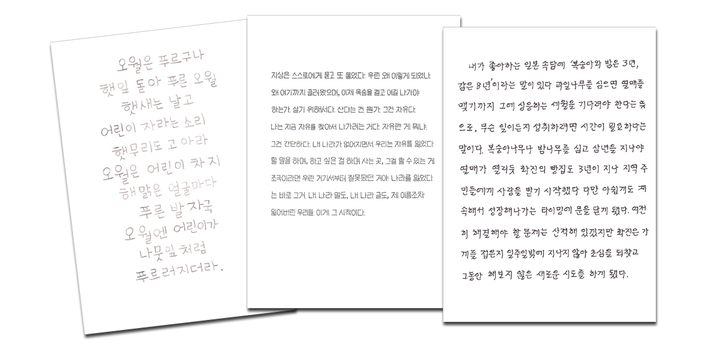 오월은 푸르구나
햇잎 돋아 푸른 오월
햇새는 날고
어린이 자라는 소리
햇무리도 고아라
오월은 어린이 차지
해맑은 얼굴마다
푸른 발자국
오월엔 어린이가
나뭇잎처럼
푸르러지더라.
지상은 스스로에게 묻고 또 물었다. 우린 왜 이렇게 되었나.
왜 여기까지 끌려왔으며, 이제 목숨을 걸고 여길 나가야
하는가. 살기 위해서다. 산다는 건 뭔가. 그건 자유다.
나는 지금 자유를 찾아서 나가려는 거다. 자유란 게 뭐냐.
그건 간단하다. 내 나라가 없어지면서 우리는 자유를 잃었다.
할 말을 하며, 하고 싶은 걸 하며 사는 곳, 그걸 할 수 있는 게
조국이라면 우린 거기서부터 잘못되었던 거야. 나라를 잃었다
는 바로 그거. 내 나라 말도, 내 나라 글도, 제 이름조차
잃어버린 우리들. 이게 그 시작이다.
내가 좋아하는 일본 속담에 '복숭아와 밤은 3년,
감은 8년'이라는 말이 있다. 과일나무를 심으면 열매를
맺기까지 그에 상응하는 세월을 기다려야 한다는 뜻
으로, 무슨 일이든지 성취하려면 시간이 필요하다는
말이다. 복숭아나무나 밤나무를 심고 삼년을 지나야
열매가 열리듯 확진의 빵집도 3년이 지나 지역 주
민들에게 사랑을 받기 시작했다. 다만 아쉽게도 계
속해서 성장해나가는 타이밍에 문을 닫게 됐다. 여전
히 해결해야 할 문제는 산적해 있겠지만 확진은 가
게를 접은지 일주일밖에 지나지 않아 초심을 되찾고
그동안 해보지 않은 새로운 시도를 하게 됐다.